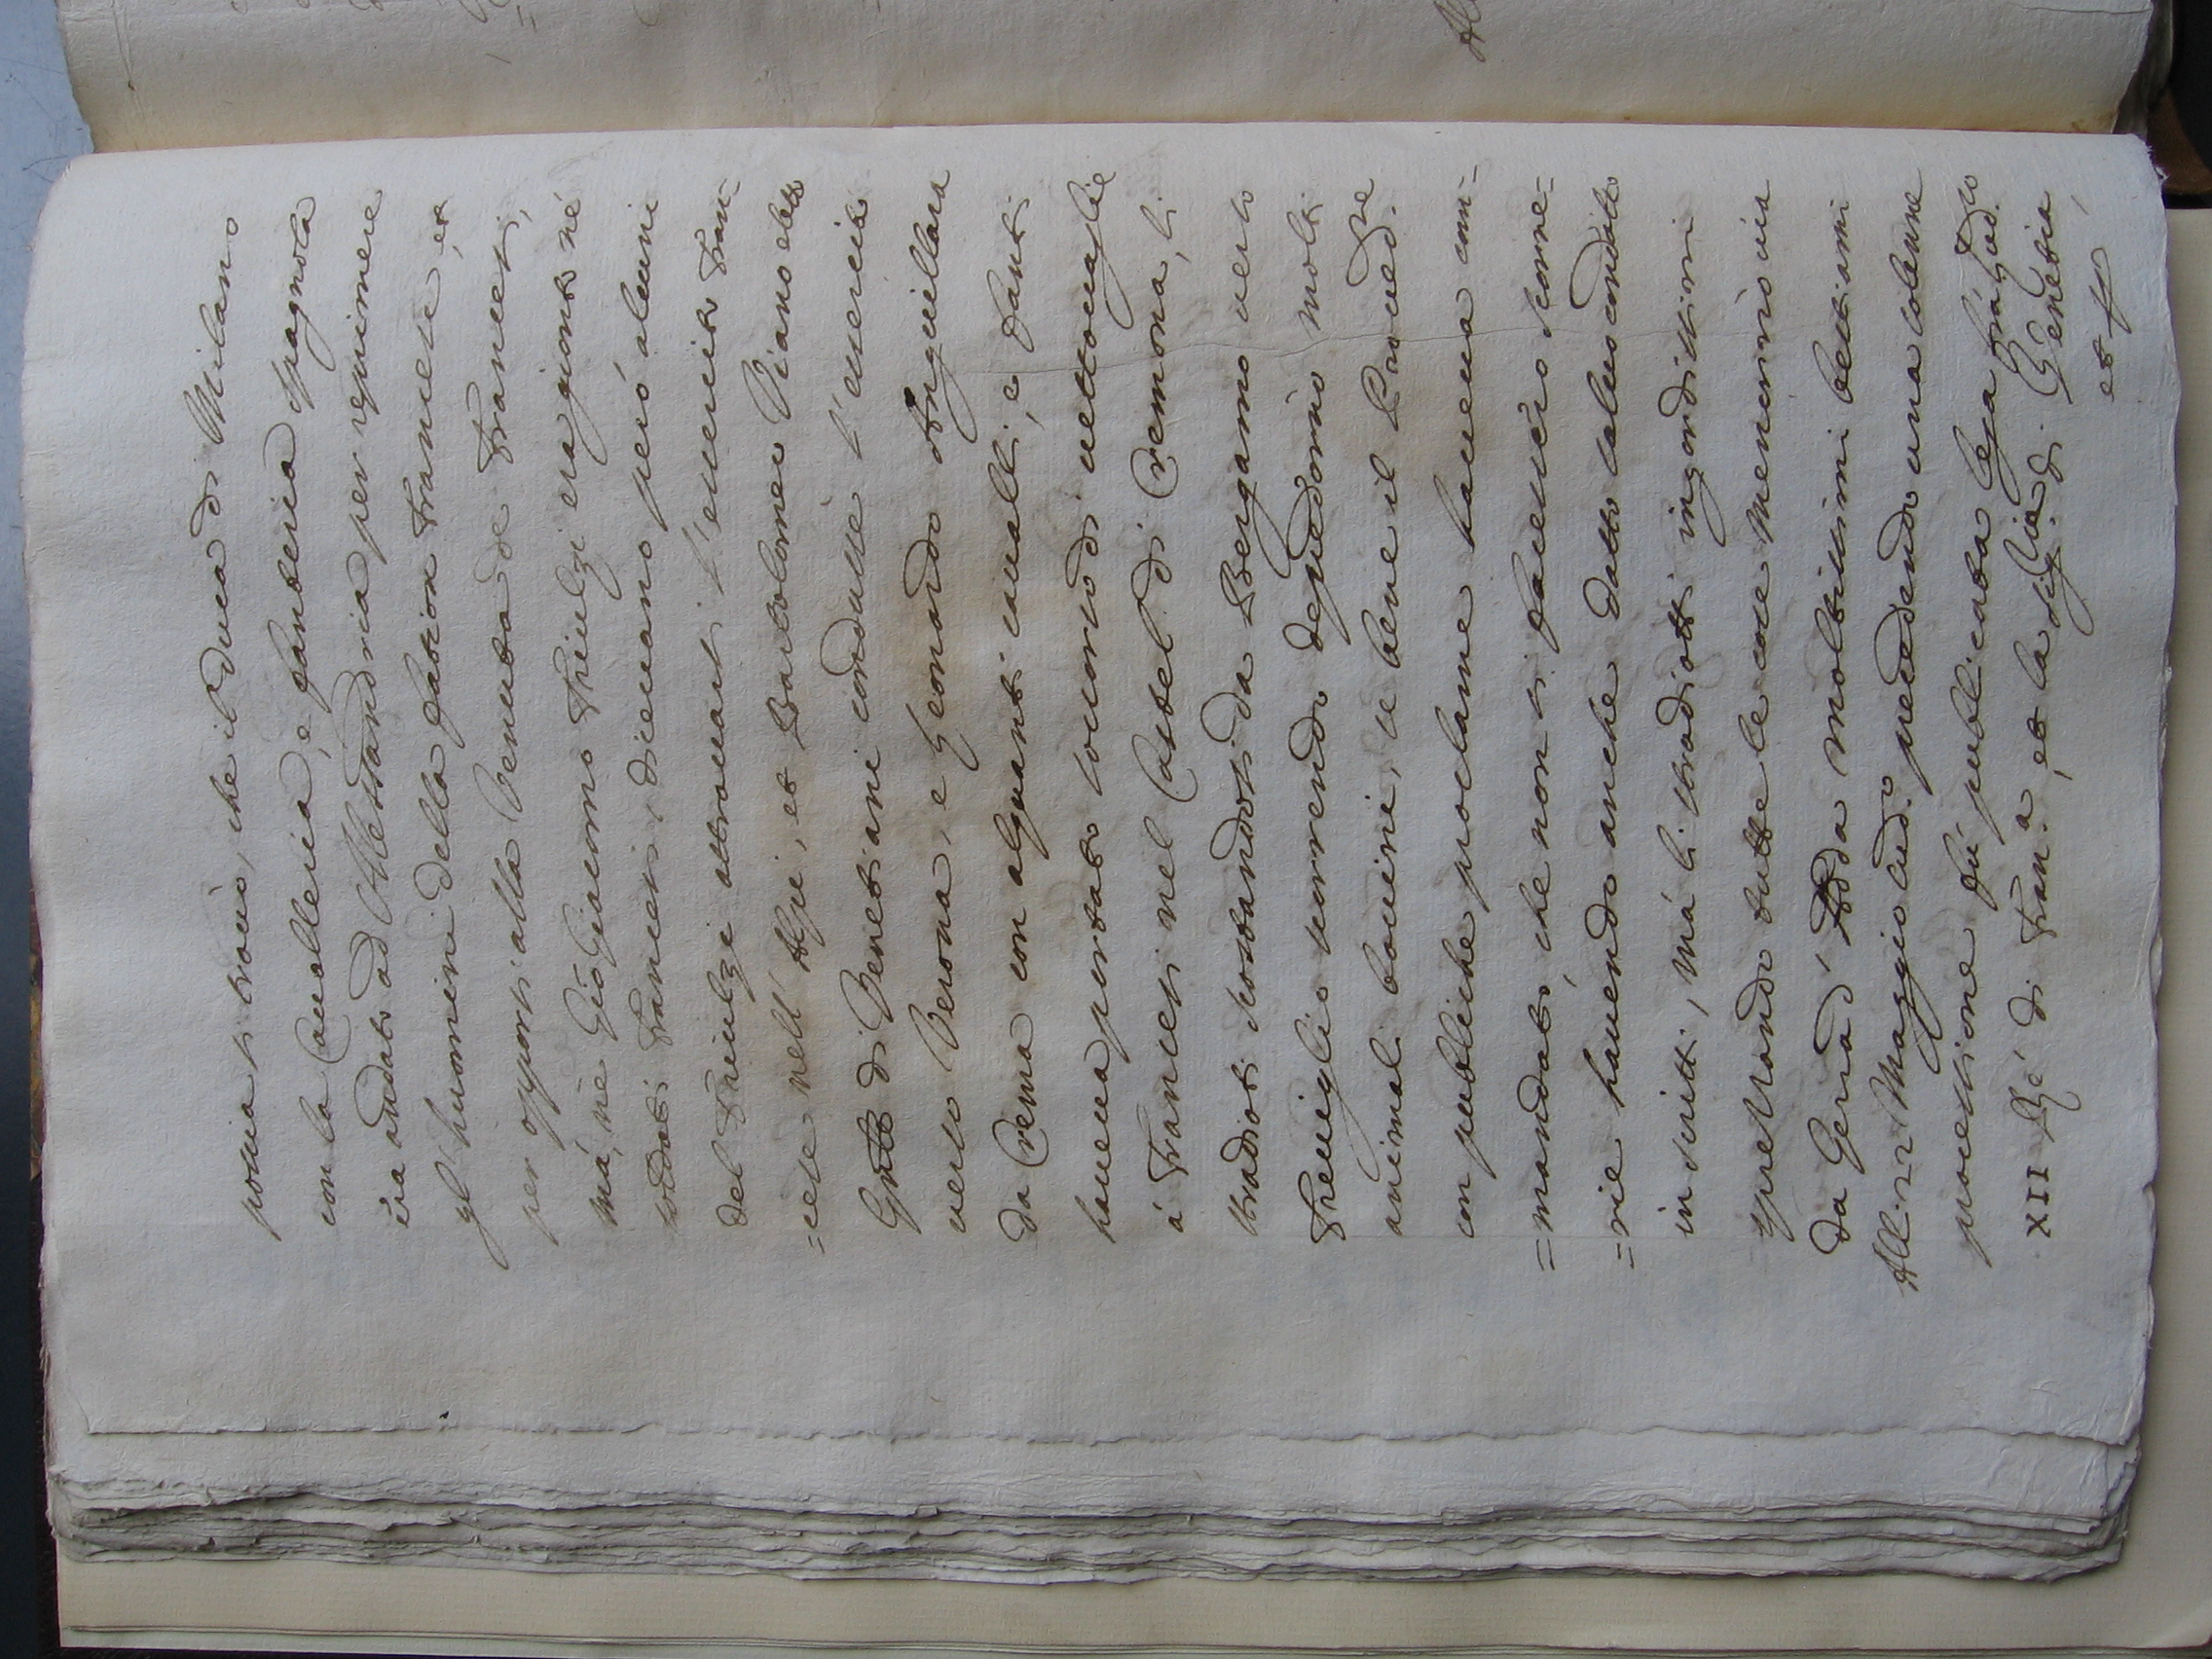 poiua si trouò, che il Duca di Milano
con la Caualleria, e fanteria spagnola
era andato ad Alessandria per reprimere
gl' huomini della fation francese, et
per opporsi alla Venuta de Francesi,
mà, nè Gio Giacomo Triulzi era gionto nè
soldati Francesi, diceuano però alcuni
del Triulzi attrouarsi l'essercito Fran=
=cese nell' Alpi, et Bartolomeo Viano
di Venetiani condusse l'essercito
uerso Verona, e Gerardo Anguillara
da Crema con alquanti caualli, e fanti
haueua portato soccorso di uettouaglie
à Francesi nel Castel di Cremona, li
stradioti scostandosi da Bergamo uerso
Treuiglio scorrendo depredorno molti
animali bouini, se bene il Proued.re
con publiche proclame haueua com=
=mandato, che non si facessero scorre=
=rie hauendo anche datto saluocondotto
in scritti, mà li stradiotti ingordissimi
sprezzando tutte le cose menorno uia
da Gerad' Adda moltissimi bestiami
Alli 22 Maggio precedendo una solenne
processione fù publicata lega frà Lod.co
XII Rè di Fran.a, et la Sig.ria di Venetia,
et fù